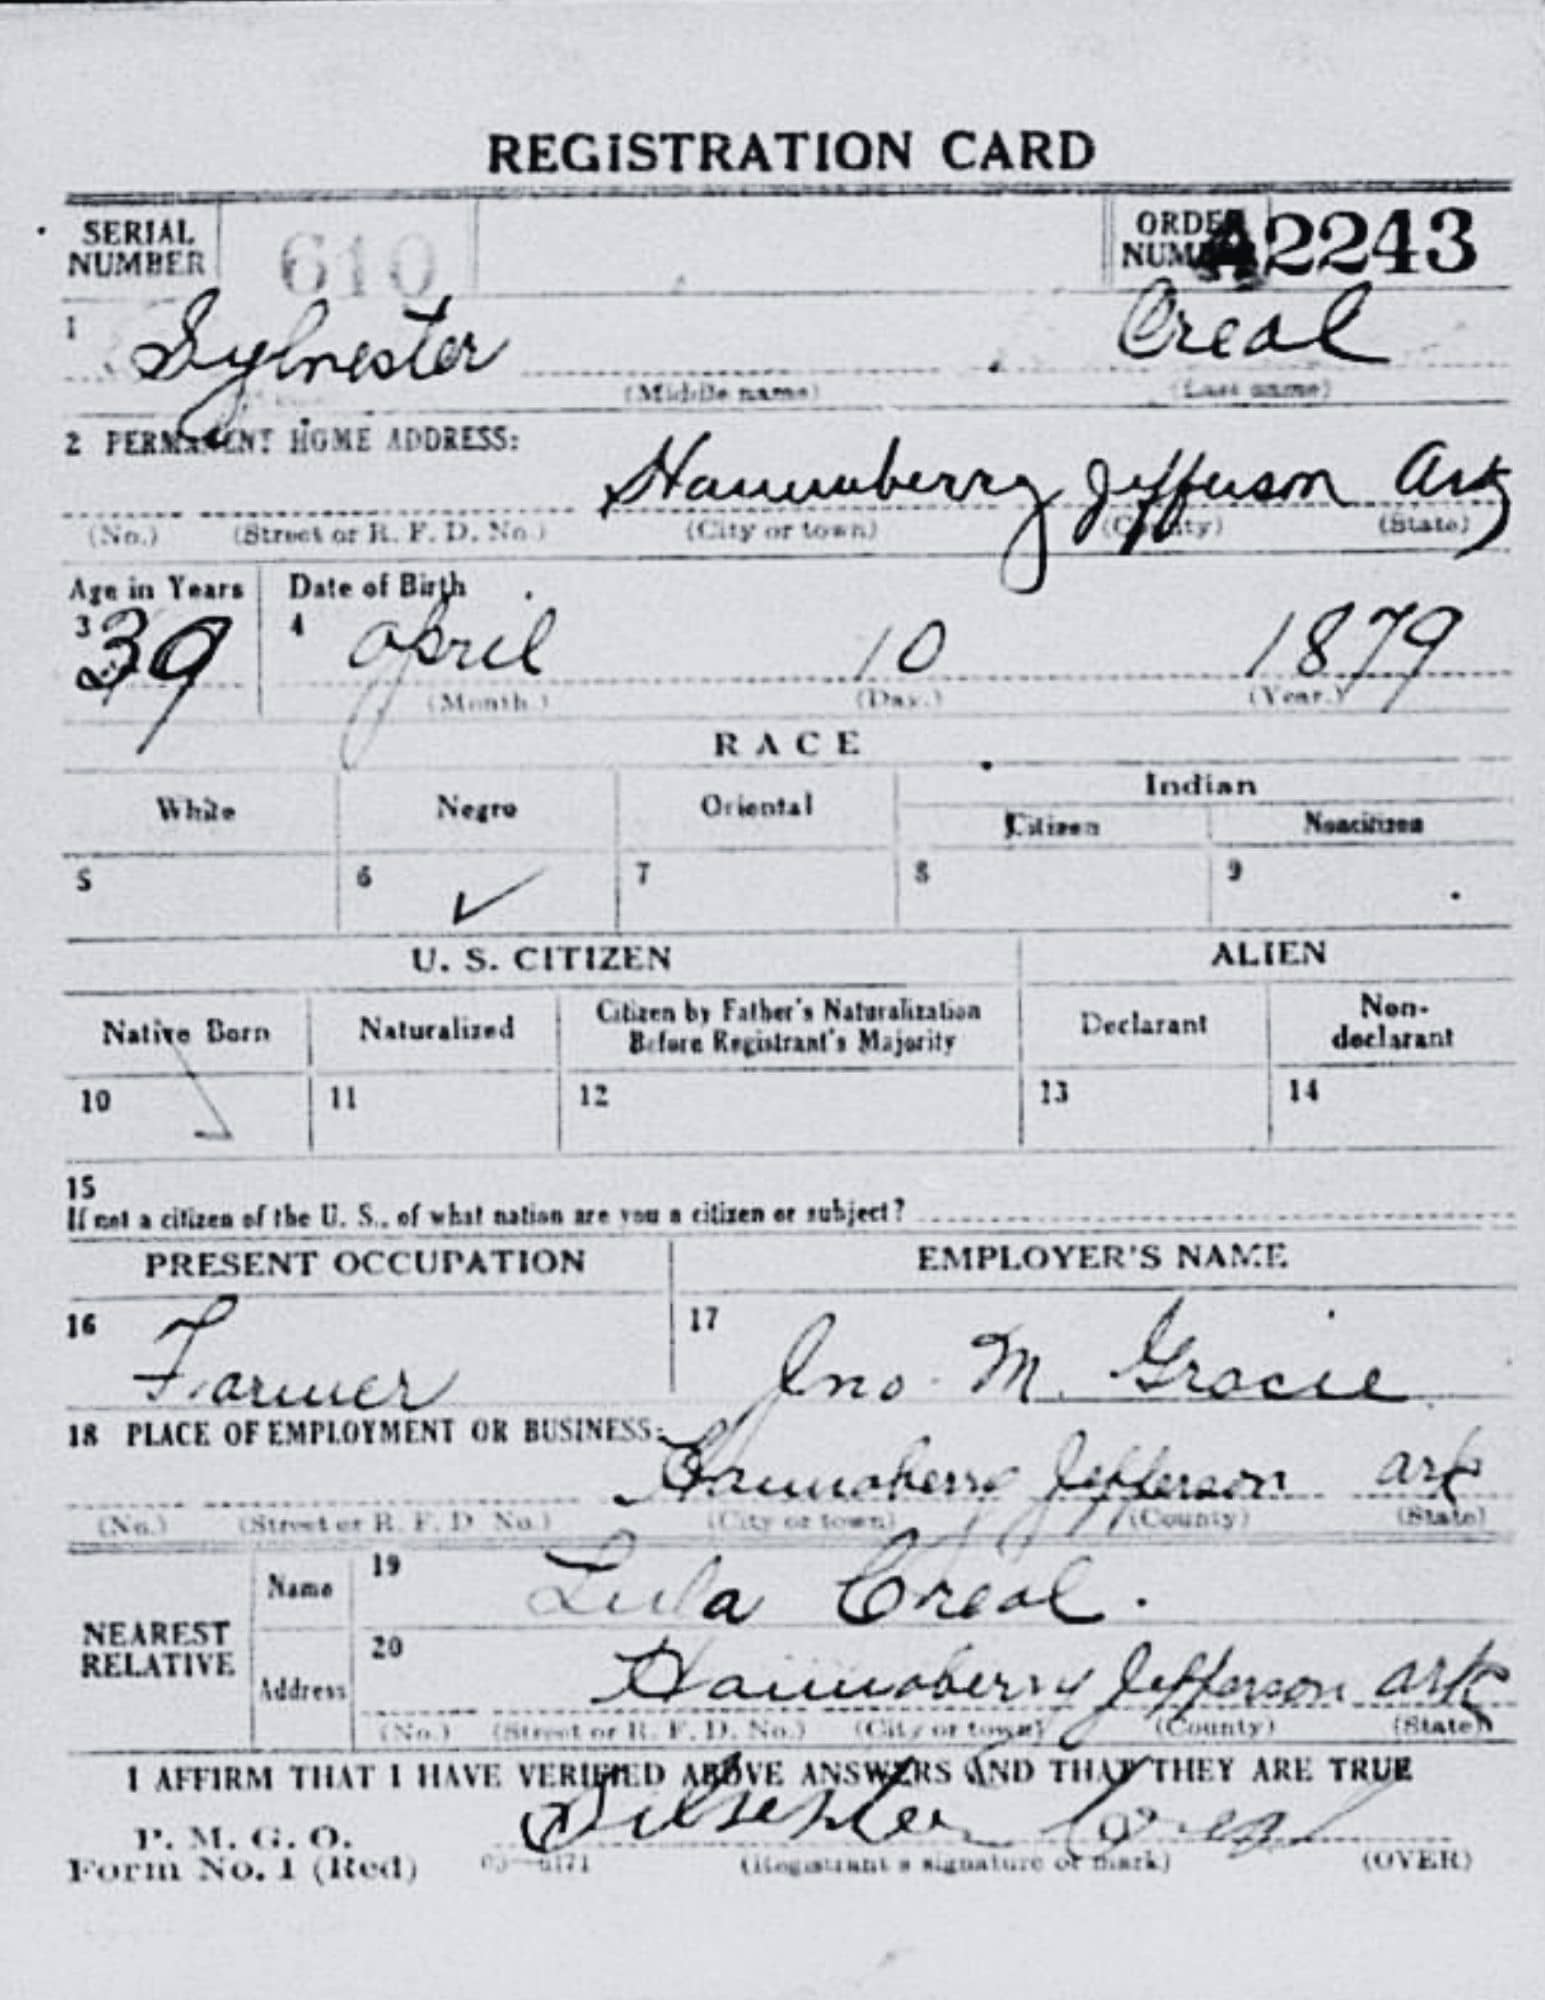 REGISTRATION CARD
SERIAL NUMBER 610 ORDER NUMBER A2243
1 Sylvester Creal
(Middle name) (Last name)
2 PERMANENT HOME ADDRESS:
Hannaberry Jefferson Ark
(No.) (Street or R. F. D. No.) (City or town) (County) (State)
Age in Years Date of Birth
3 39 4 April 10 1879
(Month.) (Day.) (Year.)
RACE
White Negro Oriental Indian
Citizen Noncitizen
5 6 ✓ 7 8 9
U. S. CITIZEN ALIEN
Native Born Naturalized Citizen by Father's Naturalization Before Registrant's Majority Declarant Non-declarant
10 11 12 13 14
15
If not a citizen of the U. S., of what nation are you a citizen or subject?
PRESENT OCCUPATION EMPLOYER'S NAME
16 Farmer 17 Jno. M. Gracie
18 PLACE OF EMPLOYMENT OR BUSINESS:
Hannaberry Jefferson Ark
(No.) (Street or R. F. D. No.) (City or town) (County) (State)
NEAREST RELATIVE
Name 19 Lula Creal.
Address 20 Hannaberry Jefferson Ark
(No.) (Street or R. F. D. No.) (City or town) (County) (State)
I AFFIRM THAT I HAVE VERIFIED ABOVE ANSWERS AND THAT THEY ARE TRUE
P. M. G. O.
Silvester Creal
Form No. 1 (Red) (Registrant's signature or mark) (OVER)